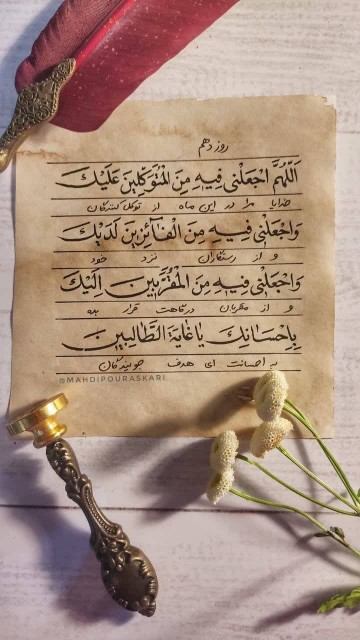 روز دهم
اَللّهُمَّ اجْعَلْنی فیهِ مِنَ الْمُتَوَکِّلینَ عَلَیْکَ
خدایا مرا در این ماه از توکل کنندگان
وَاجْعَلْنی فیهِ مِنَ الْفآئِزینَ لَدَیْکَ
و از رستگاران نزد خود
وَاجْعَلْنی فیهِ مِنَ الْمُقَرَّبینَ اِلَیْکَ
و از مقربان درگاهت قرار بده
بِاِحْسانِکَ یا غایَةَ الطّالِبینَ
به احسانت ای هدف جویندگان
@MAHDIPOURASKARI